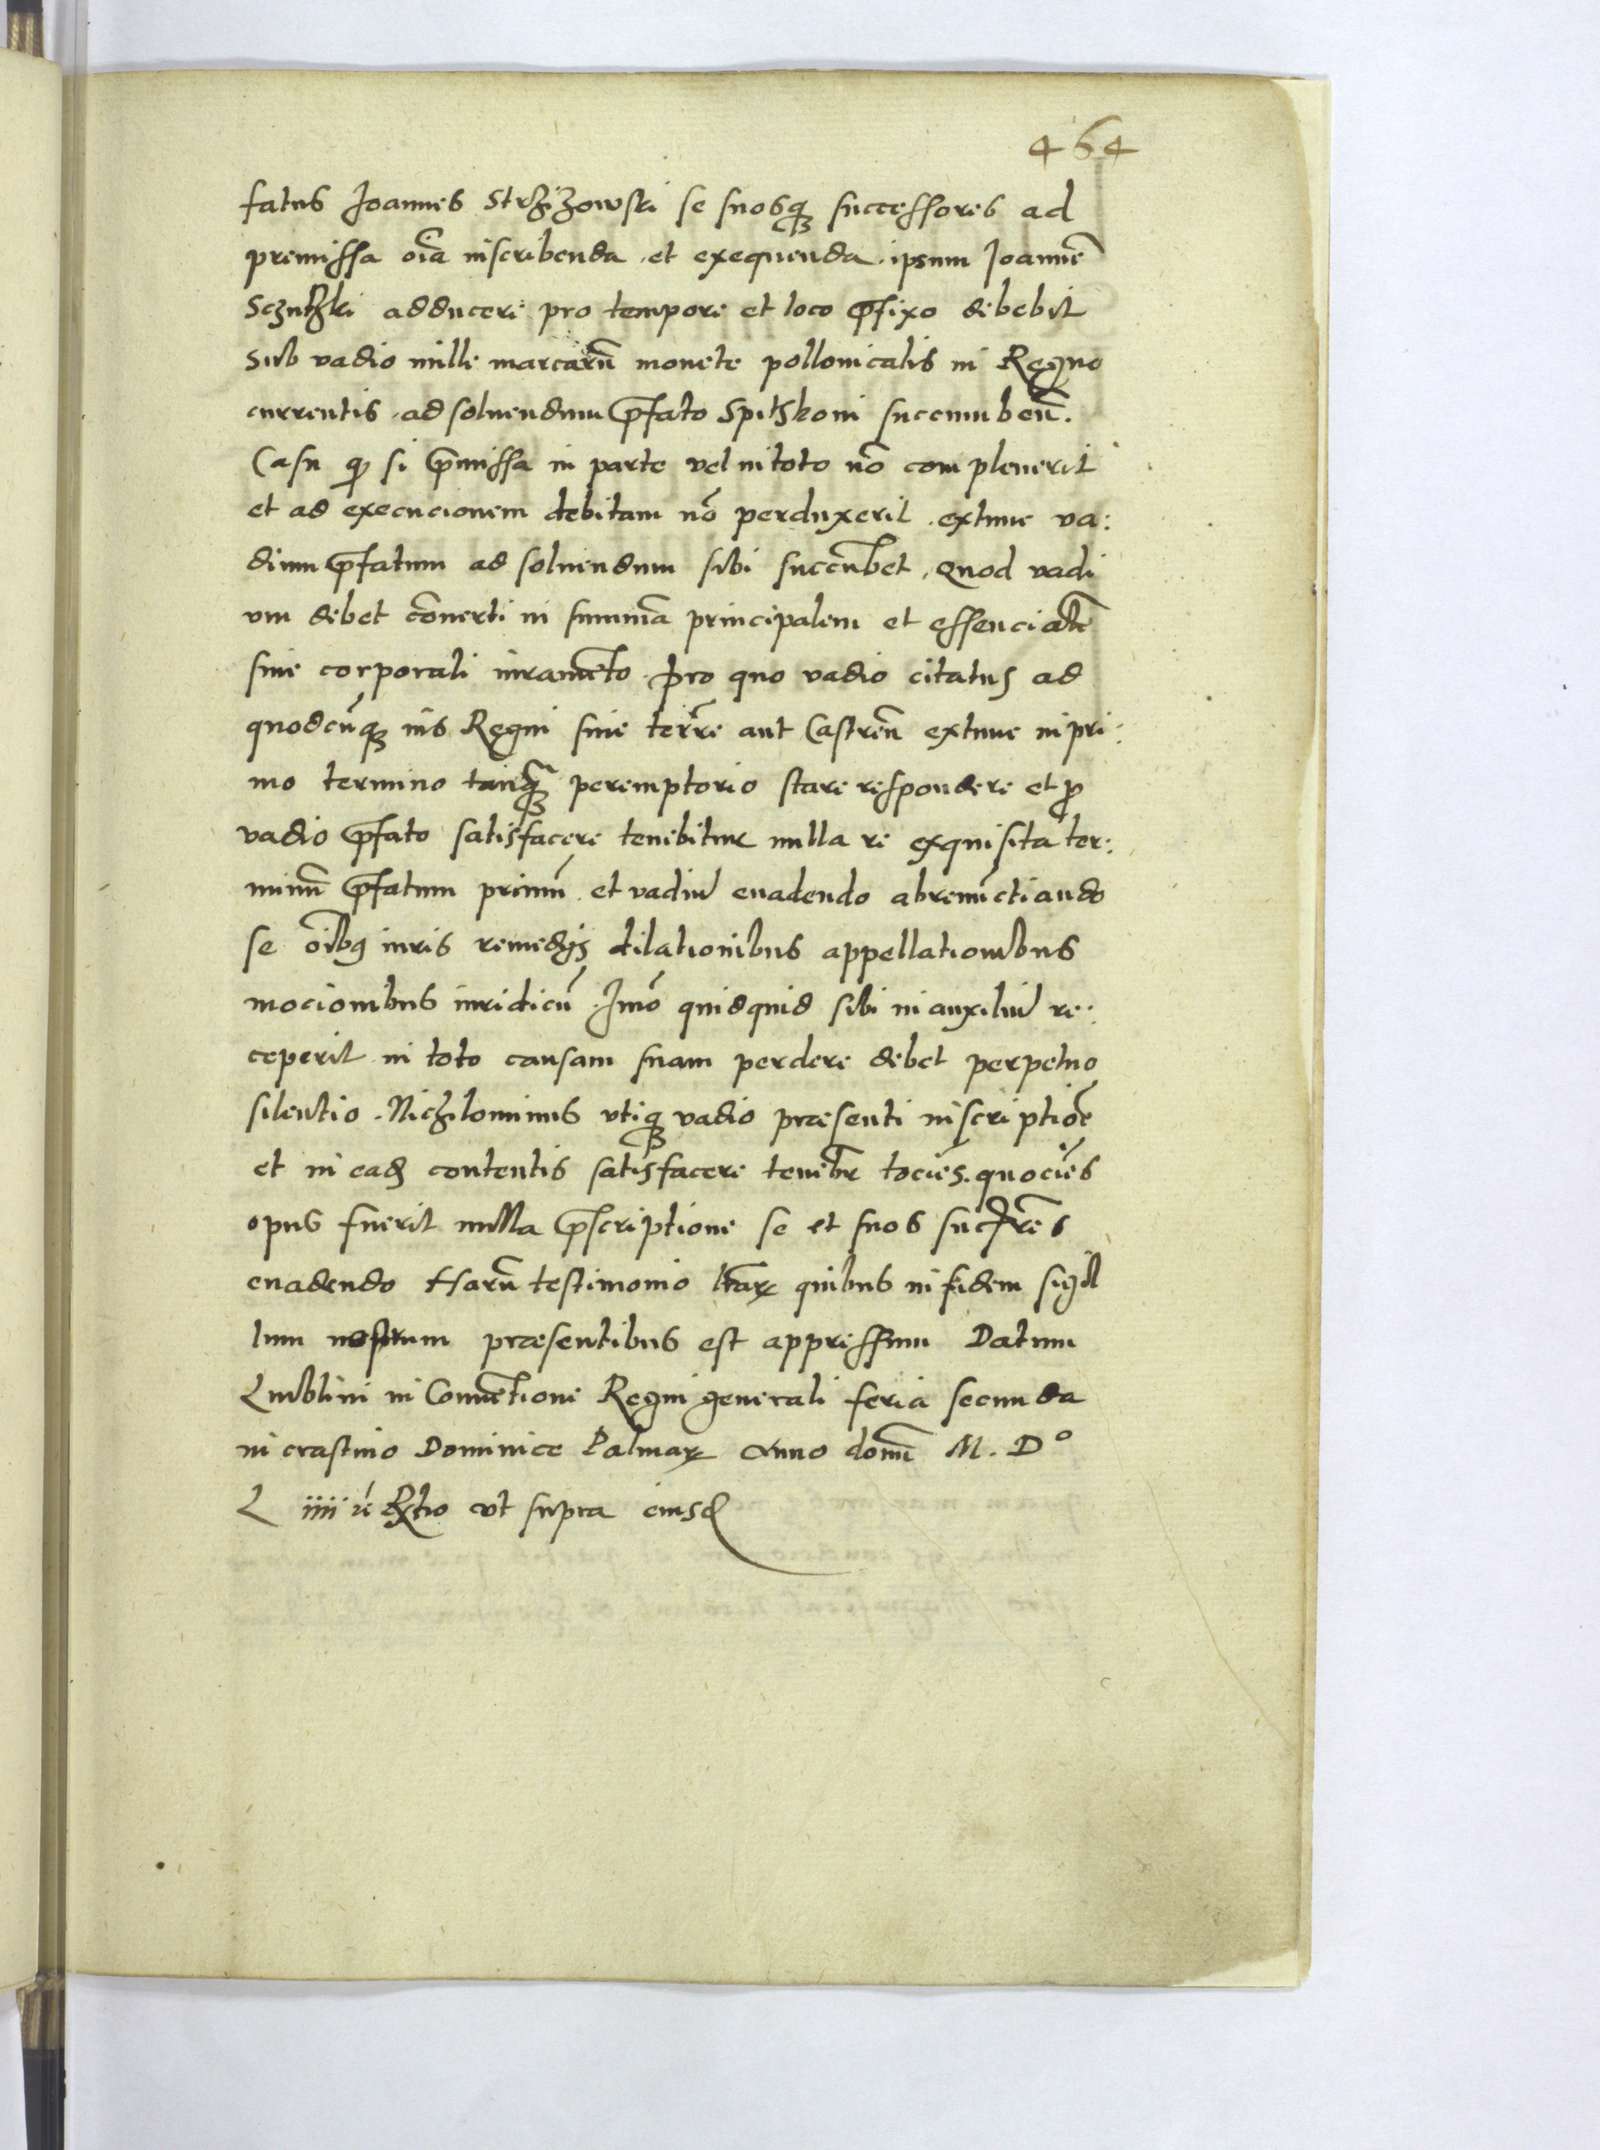 464
fatus Joannes Strzizowski se suosq3 successores ad
premissa oĩa inscribenda et exequenda ipsum Joannẽ
adducere pro tempore et loco p̃fixo debebit
Sub vadio mille marcarũ monete pollonicalis in Regno
currentis ad soluendum p̃fato Spitskoni succumbeñ.
Casu q̃ si p̃missa in parte vel in toto nõ compleuerit
et ad execucionem debitam nõ perduxerit extunc va:
dium p̃fatum ad soluendum sibi succũbet. Quod vadi
um debet cõuerti in summã principalem et essencialẽ
sine corporali iuramẽto. Pro quo vadio citatus ad
quodcũq3 ius Regni siue terrẽ aut Castreñ extunc in pri:
mo termino tanq̃3 peremptorio stare respondere et p̱
vadio p̃fato satisfacere tenebitur nulla re exquisita ter:
minũ p̃fatum primũ et vadiũ euadendo abrenũctiando
se oĩbus iuris remedijs dilationibus appellationibus
mocionibus iuridicũ. Imõ quidquid sibi in auxiliũ re:
ceperit in toto causam suam perdere debet perpetuo
silentio. Nichilominus vtiq3 vadio præsenti inscriptiõe
et in eadẽ contentis satisfacere tenebĩt tociẽs. quociẽs
opus fuerit nulla p̃scriptione se et suos succ̃res
euadendo Harũ testimonio lr̃arꝝ quibus in fidem sigil
lum nostrum præsentibus est appressum Datum
Lublini in Conuẽtione Regni generali feria secunda
in crastino Dominice Palmarꝝ Anno domĩ M. D°
L iiii° Rl̃tio vt supra eiusd̃